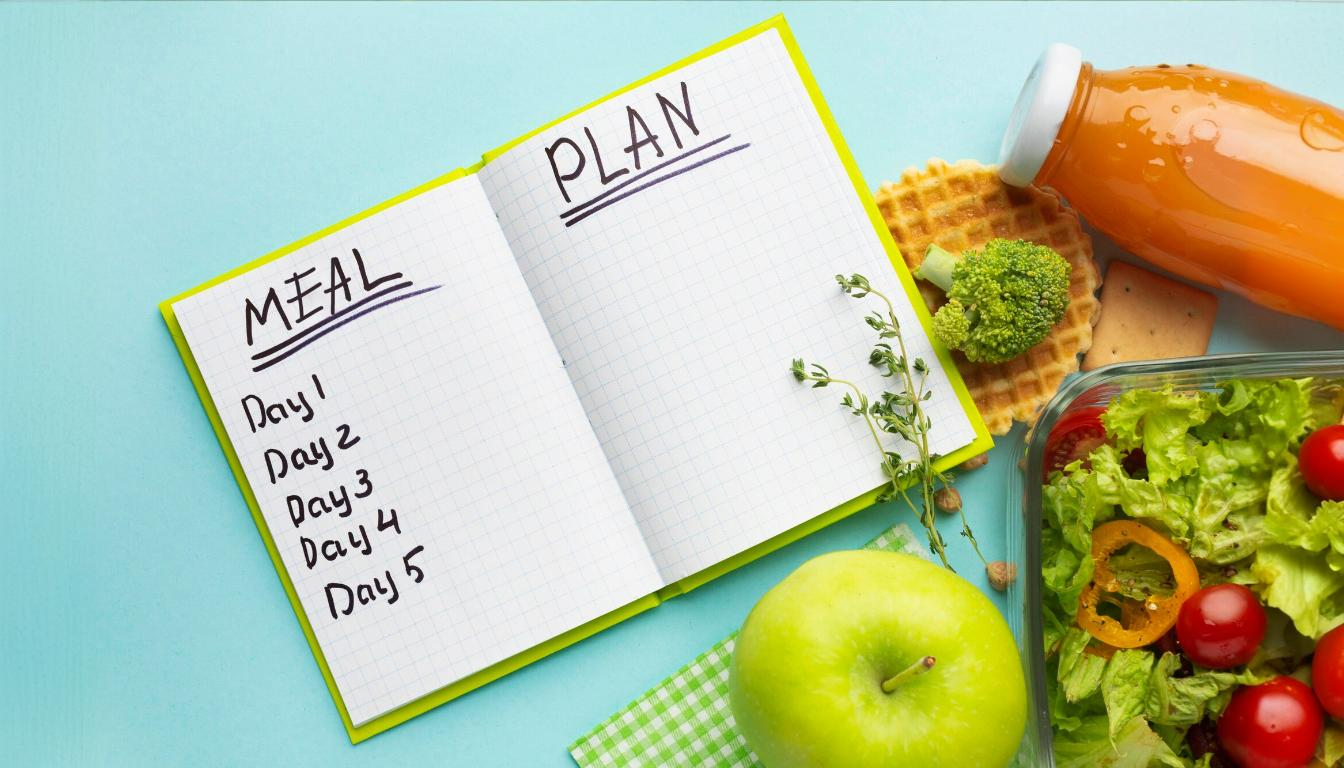 MEAL
Day 1
Day 2
Day 3
Day 4
Day 5
PLAN